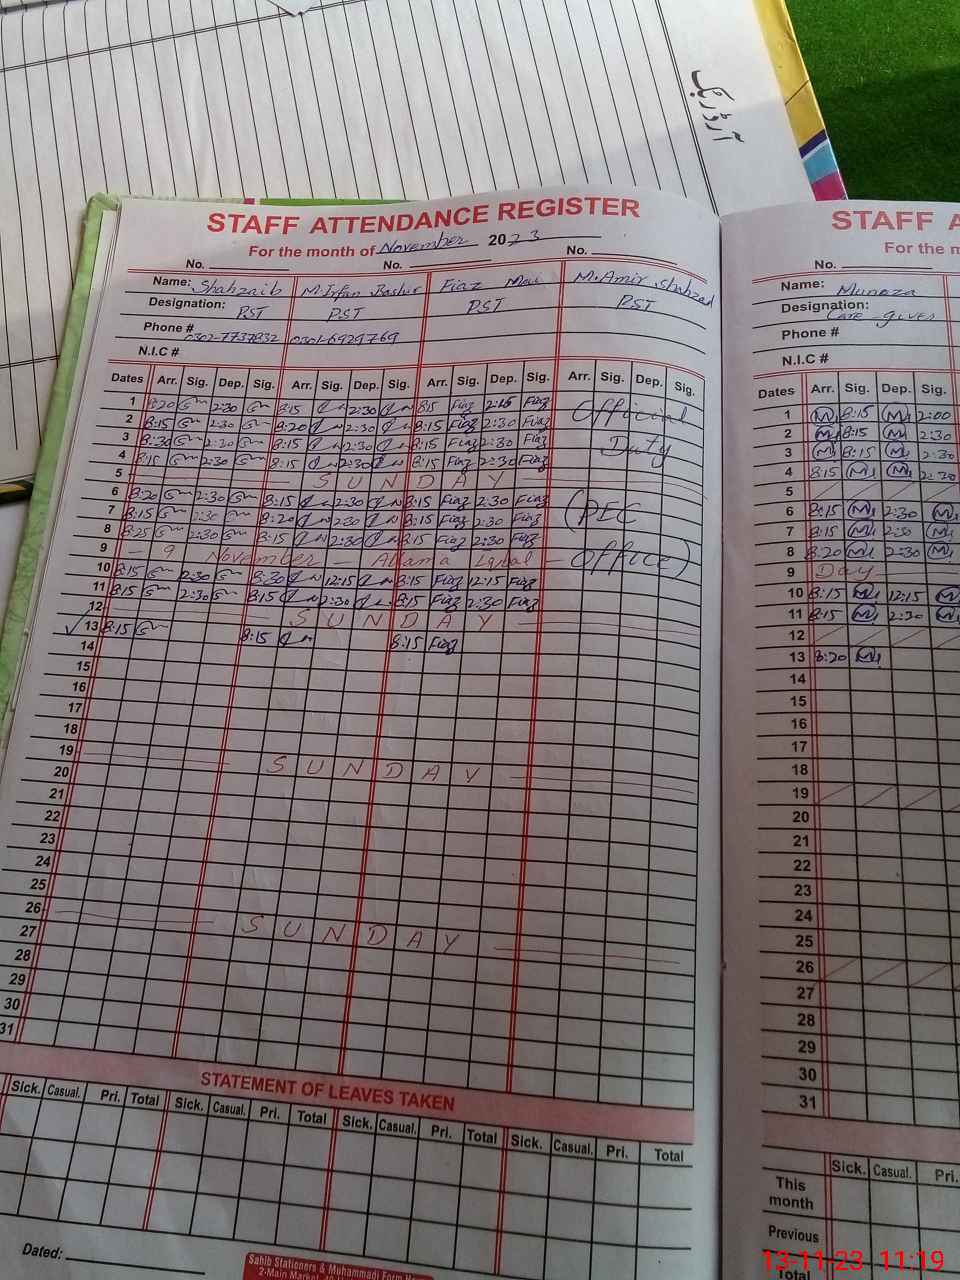 آرڈر بک
STAFF ATTENDANCE REGISTER
For the month of November 2023
No. No. No.
Name: Shahzaib M. Irfan Bashir Fiaz M. Amir Shahzad
Designation: PST PST PST PST
Phone # 0302-7737832 0301-6929769
N.I.C #
Dates Arr. Sig. Dep. Sig. Arr. Sig. Dep. Sig. Arr. Sig. Dep. Sig. Arr. Sig. Dep. Sig.
1 8:20 2:30 8:15 2:30 8:15 Fiaz 2:15 Fiaz Official
2 8:15 2:30 8:20 2:30 8:15 Fiaz 2:30 Fiaz
3 8:30 2:30 8:15 2:30 8:15 Fiaz 2:30 Fiaz Duty
4 8:15 2:30 8:15 2:30 8:15 Fiaz 2:30 Fiaz
5 SUNDAY
6 8:20 2:30 8:15 2:30 8:15 Fiaz 2:30 Fiaz
7 8:15 2:30 8:20 2:30 8:15 Fiaz 2:30 Fiaz (PEC
8 8:25 2:30 8:15 2:30 8:15 Fiaz 2:30 Fiaz
9 - 9 November - Allama Iqbal - Office)
10 8:15 2:30 8:30 12:15 8:15 Fiaz 12:15 Fiaz
11 8:15 2:30 8:15 2:30 8:15 Fiaz 2:30 Fiaz
12 SUNDAY
13 8:15 8:15 8:15 Fiaz
14
15
16
17
18
19 SUNDAY
20
21
22
23
24
25
26 SUNDAY
27
28
29
30
31
STATEMENT OF LEAVES TAKEN
Sick. Casual. Pri. Total Sick. Casual. Pri. Total Sick. Casual. Pri. Total Sick. Casual. Pri. Total
Dated:
Sahib Stationers & Muhammadi Form
2-Main Market
STAFF A
For the m
No.
Name: Muneza
Designation: Care-giver
Phone #
N.I.C #
Dates Arr. Sig. Dep. Sig.
1 8:15 2:00
2 8:15 2:30
3 8:15 2:30
4 8:15 2:30
5
6 8:15 2:30
7 8:15 2:30
8 8:20 2:30
9 Day
10 8:15 12:15
11 8:15 2:30
12
13 8:20
14
15
16
17
18
19
20
21
22
23
24
25
26
27
28
29
30
31
Sick. Casual. Pri.
This month
Previous
Total
13-11-23 11:19